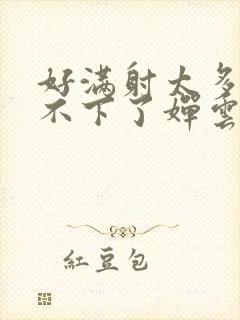 好满射太多
不下了婵雲
紅豆包